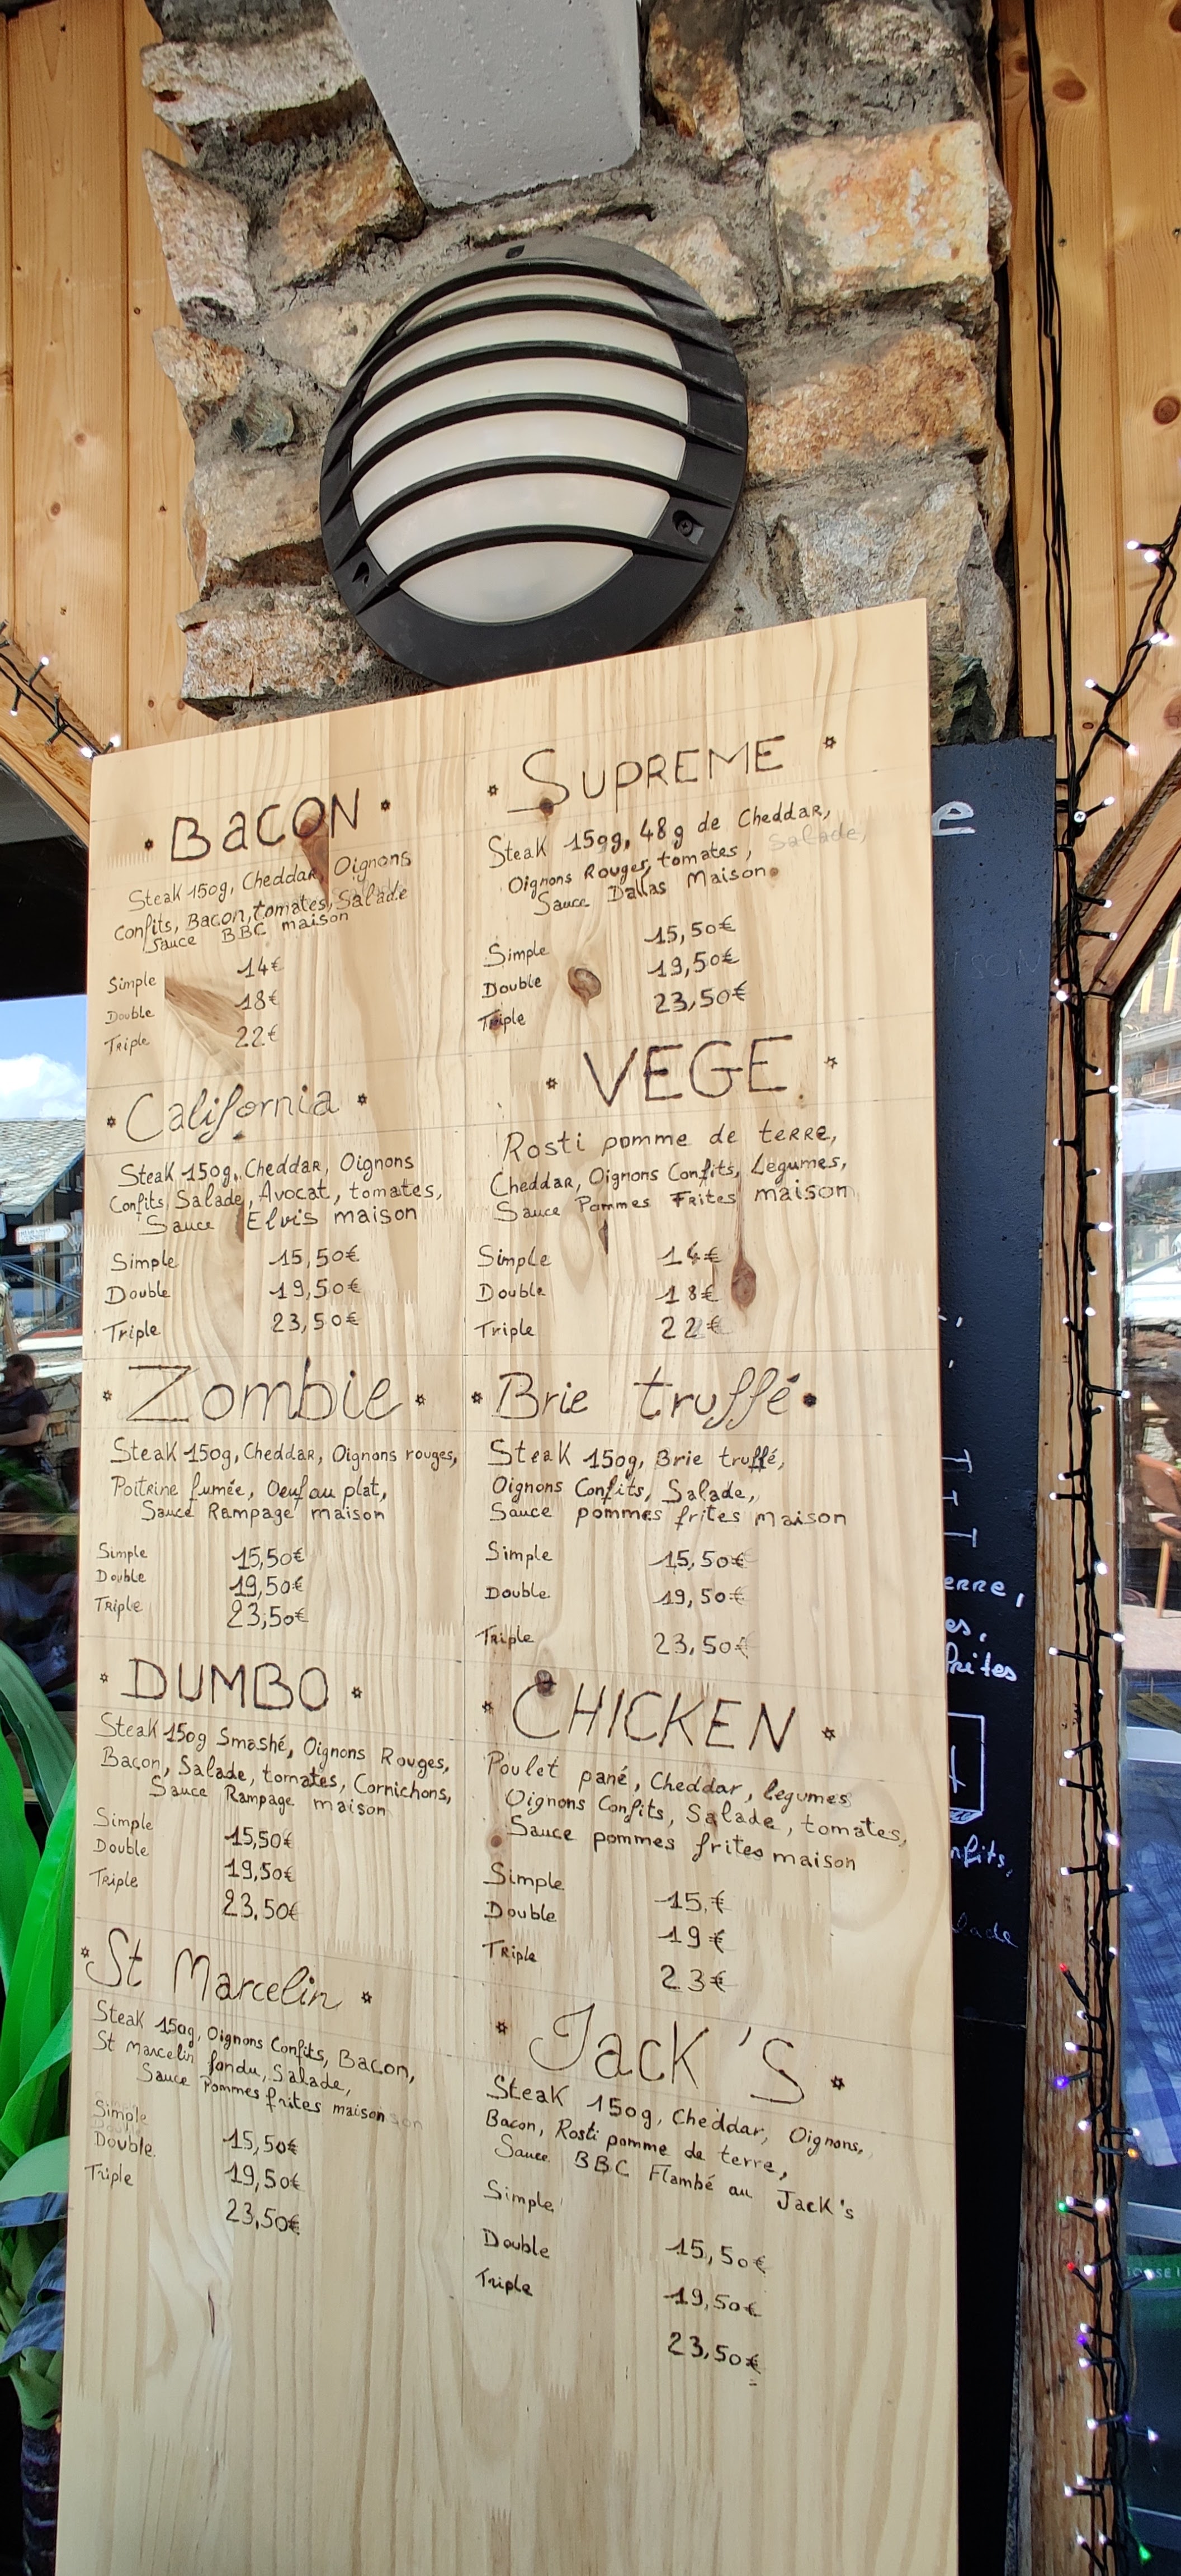 BACON
Steak 150g, Cheddar, Oignons
Confits, Bacon, tomates, Salade
Sauce BBC maison
Simple 14€
Double 18€
Triple 22€
California
Steak 150g, Cheddar, Oignons
Confits, Salade, Avocat, tomates,
Sauce Elvis maison
Simple 15,50€
Double 19,50€
Triple 23,50€
Zombie
Steak 150g, Cheddar, Oignons rouges,
Poitrine fumée, Oeuf au plat,
Sauce Rampage maison
Simple 15,50€
Double 19,50€
Triple 23,50€
DUMBO
Steak 150g Smashé, Oignons Rouges,
Bacon, Salade, tomates, Cornichons,
Sauce Rampage maison
Simple 15,50€
Double 19,50€
Triple 23,50€
St Marcelin
Steak 150g, Oignons Confits, Bacon,
St Marcelin fondu, Salade,
Sauce Pommes frites maison
Simple 15,50€
Double 19,50€
Triple 23,50€
SUPREME
Steak 150g, 48g de Cheddar,
Oignons Rouges, tomates, Salade,
Sauce Dallas Maison
Simple 15,50€
Double 19,50€
Triple 23,50€
VEGE
Rosti pomme de terre,
Cheddar, Oignons Confits, Légumes,
Sauce Pommes Frites maison
Simple 14€
Double 18€
Triple 22€
Brie truffé
Steak 150g, Brie truffé,
Oignons Confits, Salade,
Sauce pommes frites maison
Simple 15,50€
Double 19,50€
Triple 23,50€
CHICKEN
Poulet pané, Cheddar, légumes
Oignons Confits, Salade, tomates,
Sauce pommes frites maison
Simple 15,€
Double 19€
Triple 23€
Jack's
Steak 150g, Cheddar, Oignons,
Bacon, Rosti pomme de terre,
Sauce BBC Flambé au Jack's
Simple 15,50€
Double 19,50€
Triple 23,50€
e
erre,
es,
frites
nfits,
lade